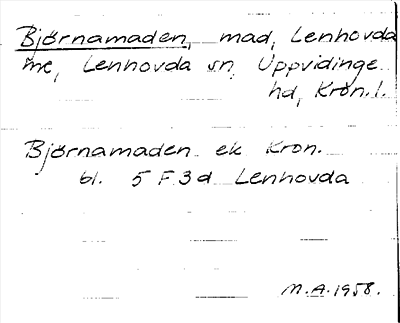 Björnamaden, mad, Lenhovda
me, Lenhovda sn, Uppvidinge
hd, Kron. l.
Björnamaden ek Kron.
bl. 5 F 3 d Lenhovda
M.A. 1958.